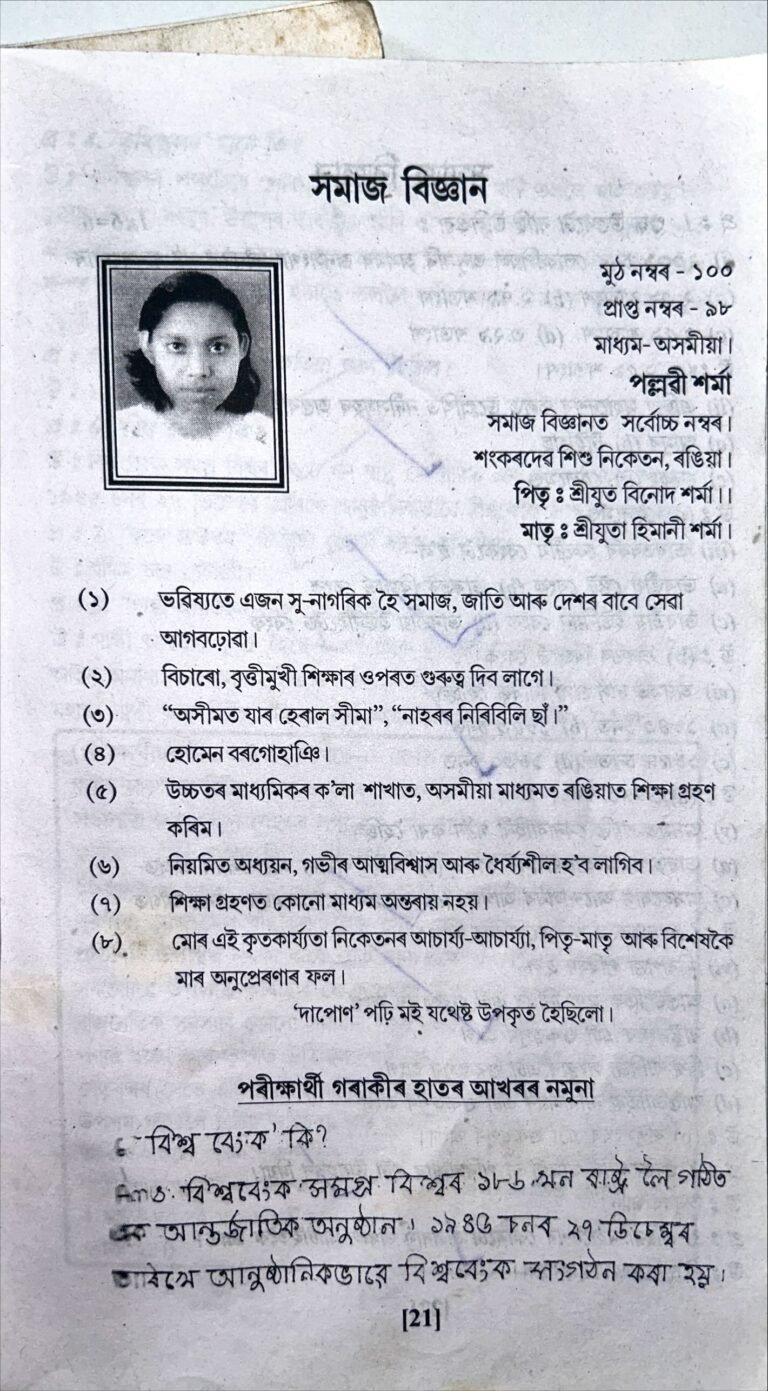 সমাজ বিজ্ঞান
মুঠ নম্বৰ - ১০০
প্ৰাপ্ত নম্বৰ - ৯৮
মাধ্যম- অসমীয়া।
পল্লৱী শৰ্মা
সমাজ বিজ্ঞানত সৰ্বোচ্চ নম্বৰ।
শংকৰদেৱ শিশু নিকেতন, ৰঙিয়া।
পিতৃ ঃ শ্ৰীযুত বিনোদ শৰ্মা।।
মাতৃ ঃ শ্ৰীযুতা হিমানী শৰ্মা।
(১) ভৱিষ্যতে এজন সু-নাগৰিক হৈ সমাজ, জাতি আৰু দেশৰ বাবে সেৱা
আগবঢ়োৱা।
(২) বিচাৰো, বৃত্তীমুখী শিক্ষাৰ ওপৰত গুৰুত্ব দিব লাগে।
(৩) “অসীমত যাৰ হেৰাল সীমা”, “নাহৰৰ নিৰিবিলি ছাঁ।”
(৪) হোমেন বৰগোহাঞি।
(৫) উচ্চতৰ মাধ্যমিকৰ ক'লা শাখাত, অসমীয়া মাধ্যমত ৰঙিয়াত শিক্ষা গ্ৰহণ
কৰিম।
(৬) নিয়মিত অধ্যয়ন, গভীৰ আত্মবিশ্বাস আৰু ধৈৰ্য্যশীল হ'ব লাগিব।
(৭) শিক্ষা গ্ৰহণত কোনো মাধ্যম অন্তৰায় নহয়।
(৮) মোৰ এই কৃতকাৰ্য্যতা নিকেতনৰ আচাৰ্য্য-আচাৰ্য্যা, পিতৃ-মাতৃ আৰু বিশেষকৈ
মাৰ অনুপ্ৰেৰণাৰ ফল।
'দাপোণ' পঢ়ি মই যথেষ্ট উপকৃত হৈছিলো।
পৰীক্ষাৰ্থী গৰাকীৰ হাতৰ আখৰৰ নমুনা
বিশ্ব বেংক' কি?
Ans. বিশ্ববেংক সমগ্ৰ বিশ্বৰ ১৮৬ খন ৰাষ্ট্ৰ লৈ গঠিত
এক আন্তৰ্জাতিক অনুষ্ঠান। ১৯৪৫ চনৰ ২৭ ডিচেম্বৰ
তাৰিখে আনুষ্ঠানিকভাৱে বিশ্ববেংক সংগঠন কৰা হয়।
[21]